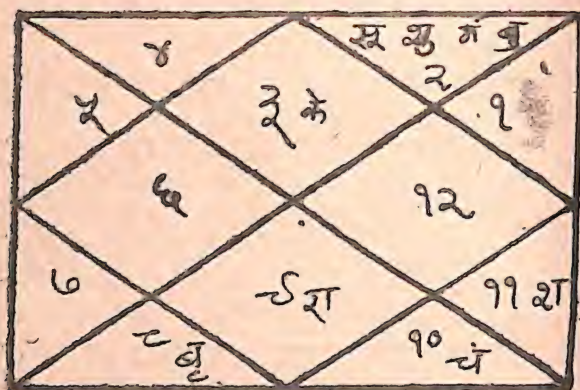 ४
सू शु मं बु
२
५
३ के
१
६
१२
७
९ रा
११ श
८ बृ
१० चं